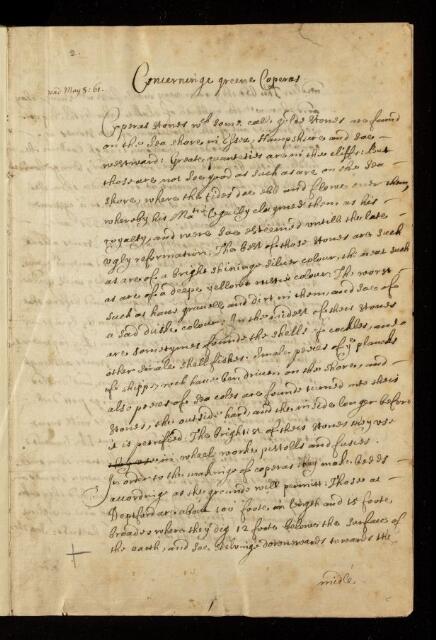 2.
Concerninge greene Coperas
read May 8: 61.
Coperas stones wch some call Gilde stones are found
on the sea shore in Essex, Hampshire and soe
westward: Greate quantities are in the cliffs: But
those are not soe good as such as are on the sea
shore, where the tides doe ebb and flowe over them,
whereby his Matie legally claymed them as his
royalty, and were soe esteemed untill the late
ugly reformation. The best of these stones are such
as are of a bright shininge silver colour, the next such
as are of a deepe yellow rustie colour. The worst
such as have gravell and dirt in them, and soe of
a sad durtie colour. In the midest of these stones
are sometymes founde the shells of cockles, and
other smale shell fishes. Smale peices of ye planck
of shipps, wch have ben driven on the shore, and
also peeces of sea coles are founde turned into theis
stones, the outside hard, and the inside longer before
it is petrified. The brightest of theis stones they use
in wheel worke pistolls and fusees.
In order to the makinge of coperas: they make bedds
according as the grounde will permitt: Those at
Deptford are about 100 foote in length and 15 foote
broade where they dig 12 foote belowe the surface of
the earth, and soe downwards towards the
midle